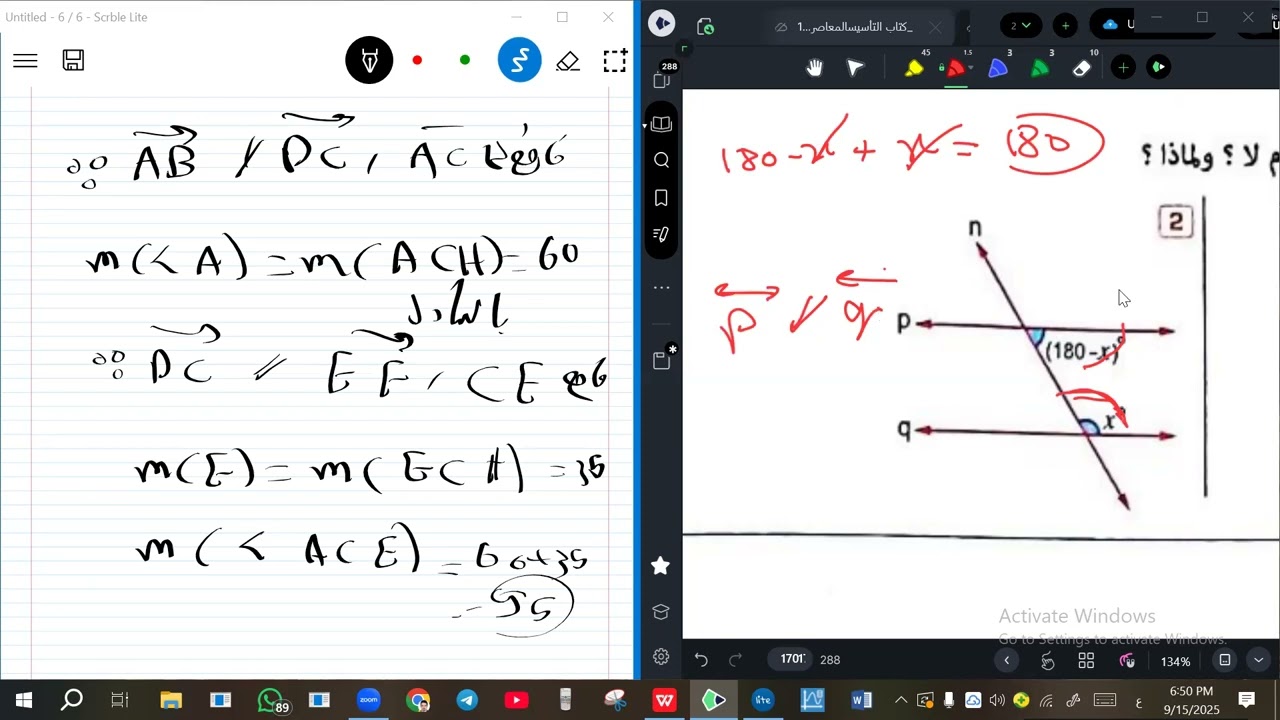 Untitled - 6 / 6 - Scrble Lite
AB // DC, AC قاطع
m(< A) = m(ACH) = 60
بالتبادل
DC // EF, CE قاطع
m(E) = m(ECH) = 35
m(< ACE) = 60+35
= 95
كتاب التأسيسالمعاصر...1_
2
U
288
45
1.5
3
3
10
180-x + x = 180
م لا ؟ ولماذا ؟
2
n
p // q
p
(180-x)°
x°
q
Activate Windows
Go to Settings to activate Windows.
1701
288
134%
89
zoom
lite
ع
6:50 PM
9/15/2025